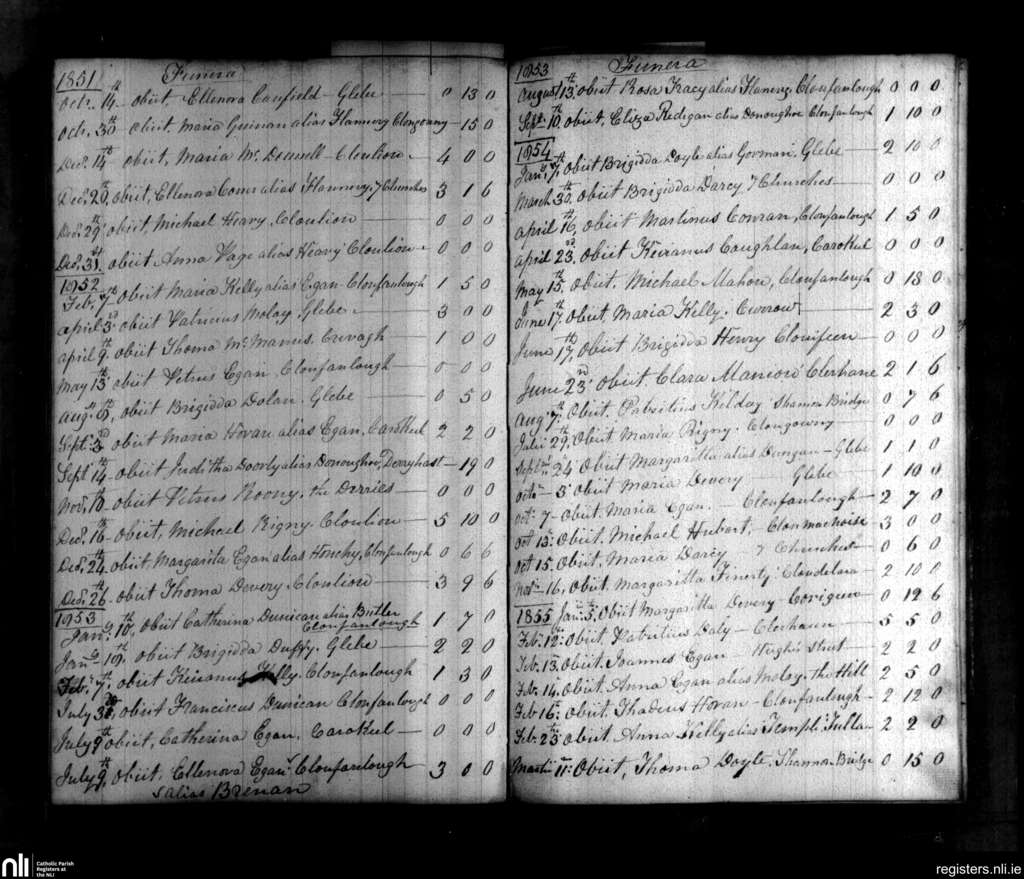 1851 Funera
Octr. 14th obiit Ellenora Canfield - Glebe 0 13 0
Octr. 30th obiit Maria Guinan alias Flannery Clongowny - 15 0
Decr. 14th obiit, Maria Mc Donnell - Cloution 4 0 0
Decr. 20, obiit, Ellenora Conn alias Flannery, 7 Churches 3 1 6
Decr. 29th obiit, Michael Heavy, Cloution 0 0 0
Decr. 31st obiit Anna Page alias Heavy Cloution 0 0 0
1852
Feb. 7th obiit Maria Kelly alias Egan - Clonfanlough 1 5 0
April 3rd obiit Patricius Moloy, Glebe 3 0 0
April 9th obiit Thoma Mc Manus, Curvagh 1 0 0
May 13th obiit Petrus Egan, Clonfanlough 0 0 0
Augt. obiit Brigidda Dolan, Glebe 0 5 0
Septr. 3rd obiit Maria Horan alias Egan, Carokeel 2 2 0
Septr. 14th obiit Juditha Doorly alias Donoughoe, Derryhast - 19 0
Novr. 10 obiit Petrus Roony, the Derries 0 0 0
Decr. 16th obiit, Michael Bigny, Cloution 5 10 0
Decr. 24 obiit Margarita Egan alias Henchy, Clonfanlough 0 6 6
Decr. 26th obiit Thoma Devery, Cloution 3 9 6
1853
Jany. 10th, obiit Catherina Dunican alias Butler
Clonfanlough 1 7 0
Jany. 19th, obiit Brigidda Duffy, Glebe 2 2 0
Feb. 7th, obiit Kieranus Kelly, Clonfanlough 1 3 0
July obiit Franciscus Dunican Clonfanlough 0 0 0
July 9th obiit, Catherina Egan, Carokeel 0 0 0
July 9th, obiit, Ellenora Egan, Clonfanlough 3 0 0
alias Brenan
1853 Funera
August 13th, obiit Rosa Tracy alias Flaming, Clonfanlough 0 0 0
Sept. 10th, obiit, Eliza Redigan alias Donoughoe Clonfanlough 1 10 0
1854
Jany. 7th, obiit Brigidda Doyle alias Gorman, Glebe 2 10 0
March 30th, obiit Brigidda Darcy 7 Churches 0 0 0
April 16th, obiit Martinus Conran, Clonfanlough 1 5 0
April 23rd, obiit Keiranus Coughlan, Carokeel 0 0 0
May 15th obiit, Michael Mahon, Clonfanlough 0 18 0
June 17th obiit Maria Kelly, Currow 2 3 0
June 17th, obiit Brigidda Henry Clonifeen 0 0 0
June 23rd obiit Clara Mannion Clerhane 2 1 6
Augt. 7th Obiit, Patritius Kilday Shannon Bridge 0 7 6
Julii 29, Obiit Maria Bigny. Clongowny 0 0 0
Septr. 24 Obiit Margaritta alias Dungan - Glebe 1 1 0
Octr. 5 Obiit Maria Devery Glebe 1 10 0
Oct. 7 - Obiit. Maria Egan. - Clonfanlough 2 7 0
Oct 13: Obiit, Michael Hubart, Clonmacnoise 3 0 0
Oct 15. Obiit, Maria Darcy 7 Churches 0 6 0
Novr. 16, Obiit. Margaritta Finerty Clondelara 2 10 0
1855 Jany. 5. Obiit Margaritta Devery - Corigeen 0 12 6
Feb. 12: Obiit Patritius Daly - Cloghaun 5 5 0
Feb. 13. obiit. Joannes Egan - High Street 2 2 0
Feb. 14. Obiit, Anna Egan alias Moloy, the Hill 2 5 0
Feb 16: Obiit, Thadeus Horan - Clonfanlough 2 12 0
Feb. 23: Obiit, Anna Kelly alias Temple Tulla 2 2 0
Martii 11: Obiit, Thoma Doyle, Shannon Bridge 0 15 0
nli
Catholic Parish
Registers at
the NLI
registers.nli.ie